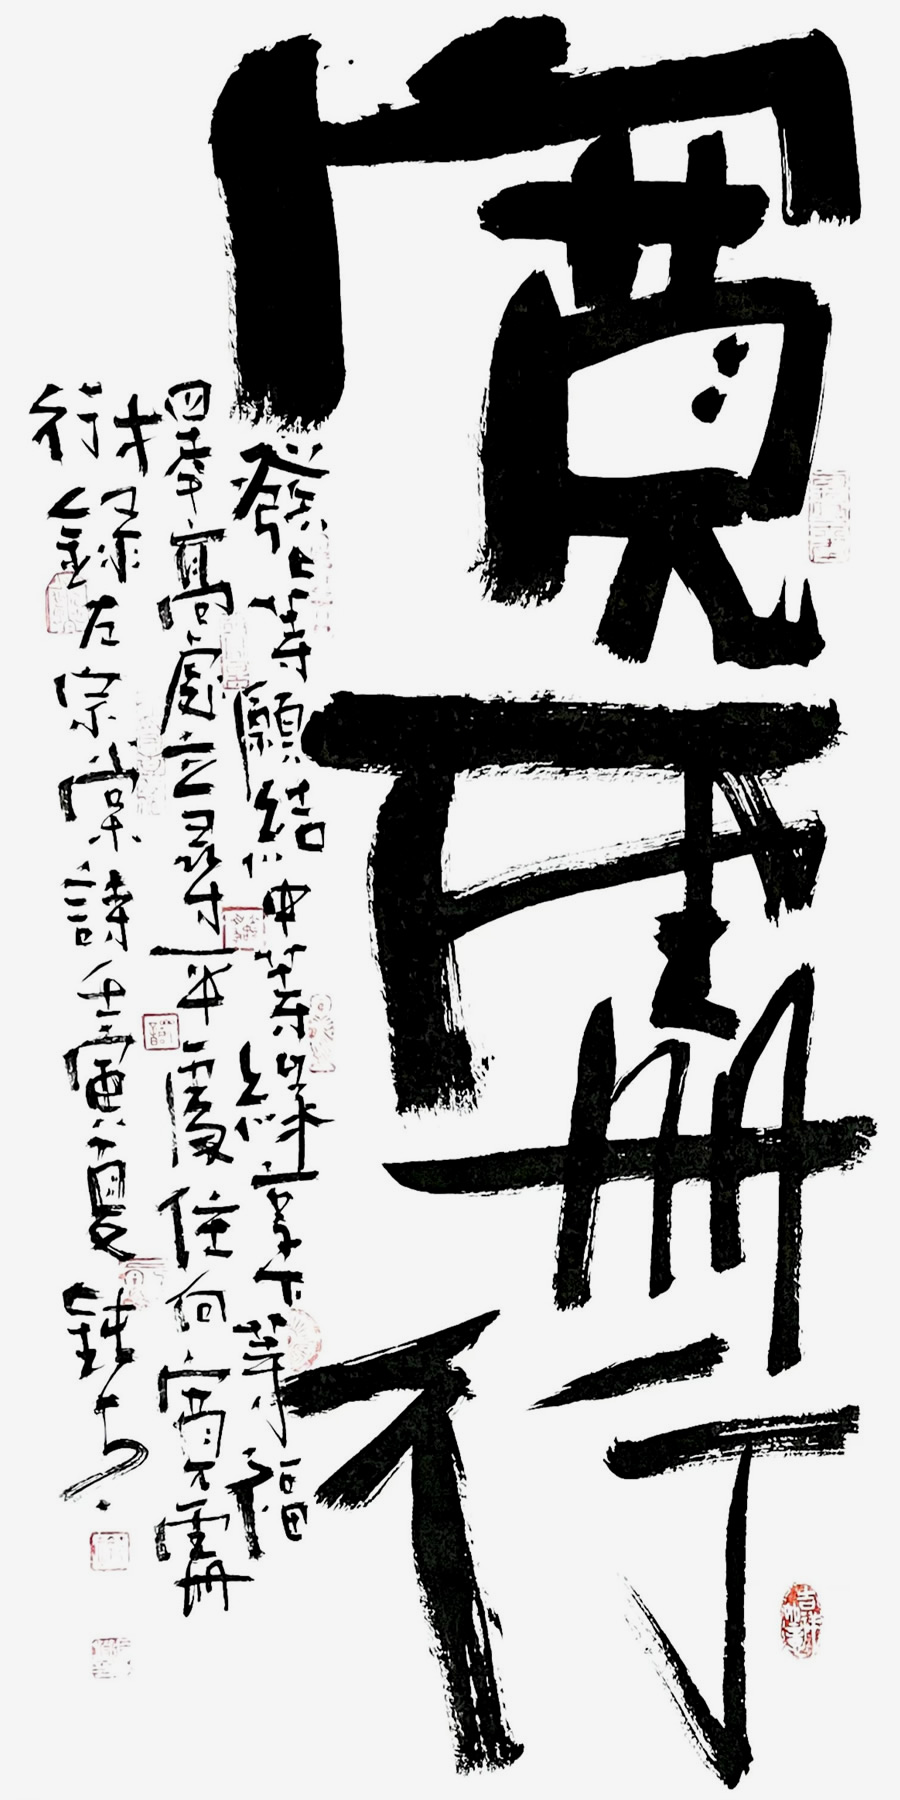 寬處行
發上等願結中等緣享下等福
擇高處立尋平處住向寬處
行錄左宗棠詩壬寅夏